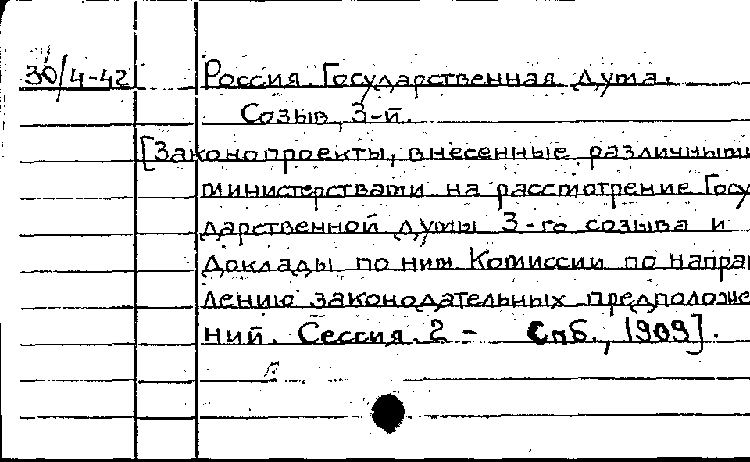 30/4-42 Россия. Государственная дума.
Созыв, 3-й.
[Законопроекты, внесенные различными
министерствами на рассмотрение Госу
дарственной думы 3-го созыва и
доклады по ним Комиссии по направ
лению законодательных предположе
ний. Сессия. 2 - Спб., 1909].